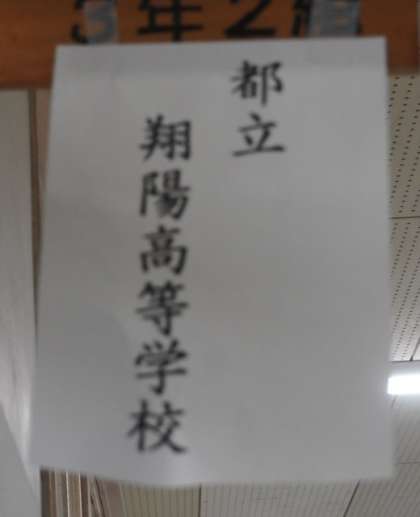 3年2組
都立
翔陽高等学校